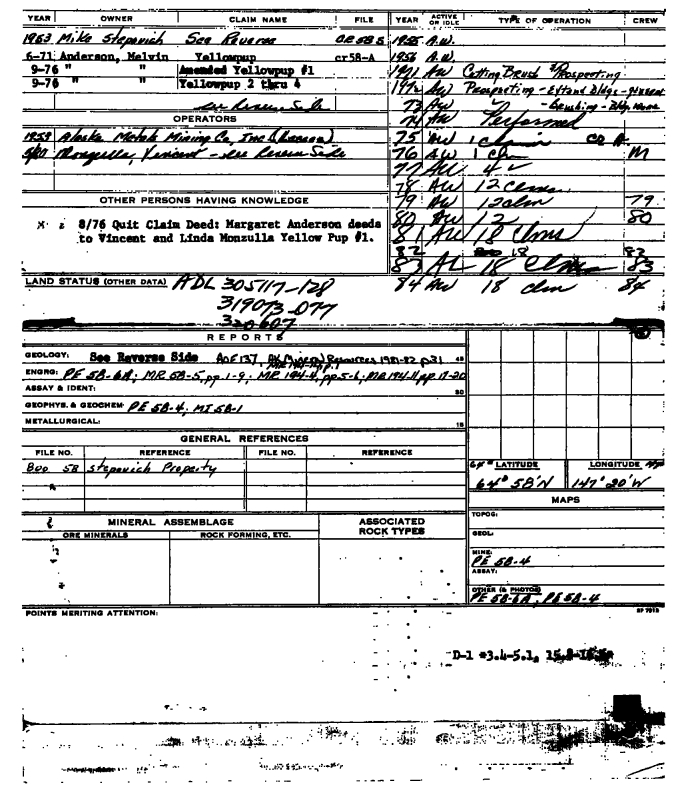 YEAR OWNER CLAIM NAME FILE YEAR ACTIVE OR IDLE TYPE OF OPERATION CREW
1953 Mike Stepovich See Reverse CR 58 5 1955 A.W.
6-71 Anderson, Melvin Yellowpup cr58-A 1956 A.W.
9-76 " " Amended Yellowpup #1 1971 AW Cutting Brush & Prospecting
9-76 " " Yellowpup 2 thru 4 1972 AW Prospecting - Extend Bldg -
see Reverse Side 73 AW - brushing - Bldg
OPERATORS 74 AW Performed
1959 Alaska Metals Mining Co, Inc 75 AW 1 claim
Vincent - see Reverse Side 76 AW 1 clm M
77 AW 4 "
78 AW 12 clms
OTHER PERSONS HAVING KNOWLEDGE 79 AW 12 clm 79
8/76 Quit Claim Deed: Margaret Anderson deeds 80 AW 12 80
to Vincent and Linda Monzulla Yellow Pup #1. 81 AW 18 clms
82 18 82
83 AL 18 clms 83
LAND STATUS (OTHER DATA) ADL 305117-128 84 AW 18 clm 84
319073-077
320607
REPORTS
GEOLOGY: See Reverse Side AOF 137, AK Mineral Resources 1981-82 p.31
MR 194-10, p.1
ENGRG: PE 58-6A; MR 58-5, pp. 1-9; MR 194-4, pp. 5-6; MR 194-11 pp. 17-20
ASSAY & IDENT:
GEOPHYS. & GEOCHEM: PE 58-4; MI 58-1
METALLURGICAL:
GENERAL REFERENCES
FILE NO. REFERENCE FILE NO. REFERENCE
800 58 Stepovich Property
LATITUDE LONGITUDE
64° 58'N 147° 20'W
MAPS
TOPOG:
MINERAL ASSEMBLAGE ASSOCIATED ROCK TYPES
ORE MINERALS ROCK FORMING, ETC.
GEOL:
MINE:
PE 58-4
ASSAY:
OTHER (& PHOTOS)
PE 58-6A; PE 58-4
POINTS MERITING ATTENTION:
D-1 *3.4-5.1,